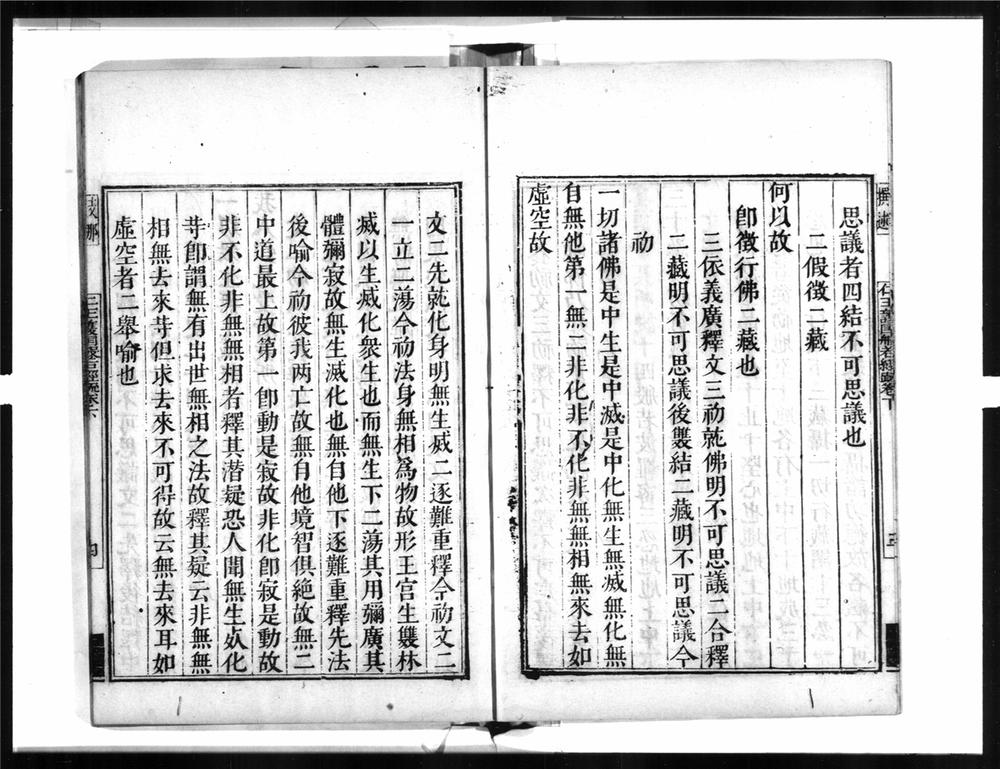 思議者四結不可思議也
二假徵二藏
何以故
卽徵行佛二藏也
三依義廣釋文三初就佛明不可思議二合釋
二藏明不可思議後雙結二藏明不可思議今
初
一切諸佛是中生是中滅是中化無生無滅無化無
自無他第一無二非化非不化非無無相無來去如
虛空故
文二先就化身明無生滅二逐難重釋今初文二
一立二蕩今初法身無相爲物故形王宮生雙林
滅以生滅化衆生也而無生下二蕩其用彌廣其
體彌寂故無生滅化也無自他下逐難重釋先法
後喻今初彼我兩亡故無自他境智俱絶故無二
中道最上故第一卽動是寂故非化卽寂是動故
非不化非無無相者釋其潛疑恐人聞無生滅化
等卽謂無有出世無相之法故釋其疑云非無無
相無去來等但求去來不可得故云無去來耳如
虛空者二舉喻也